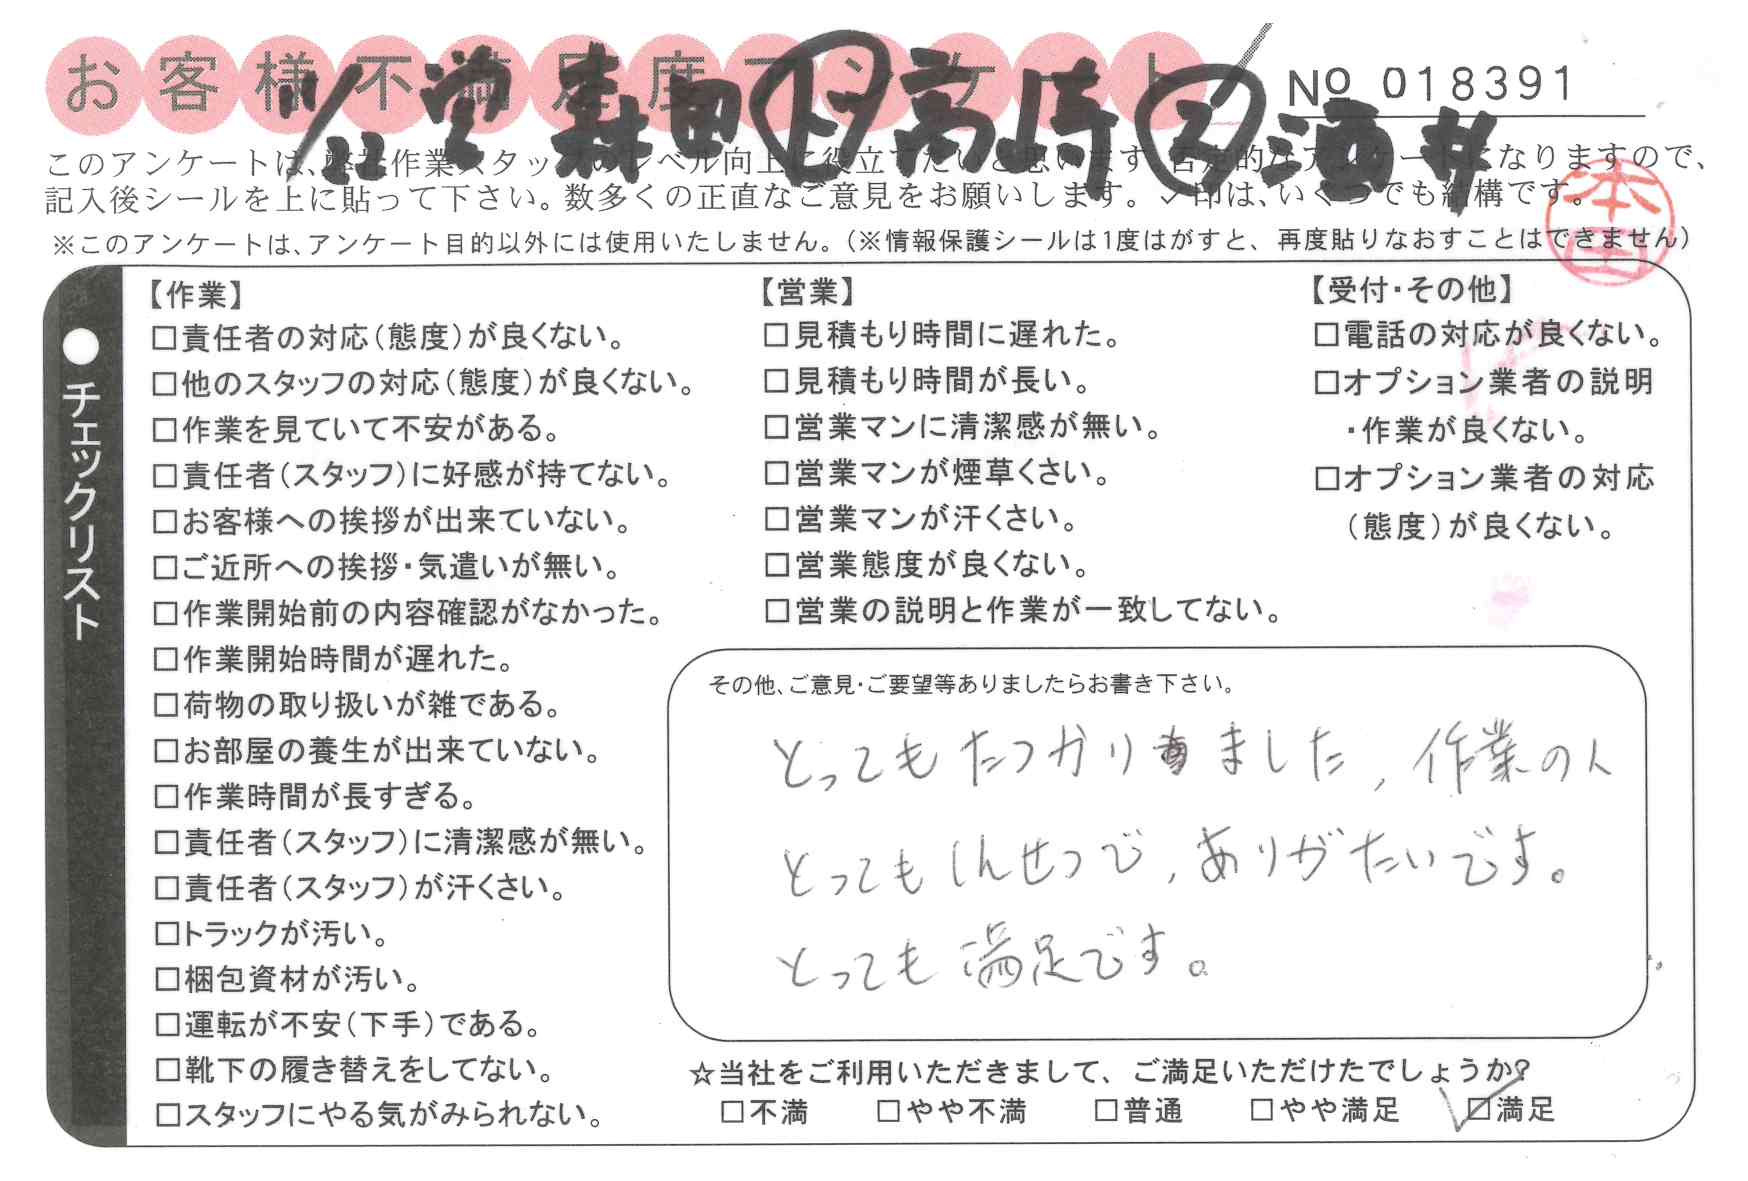 お客様不満足度アンケート
11/22 営 森田 ト 高崎 ス 酒井
No 018391
このアンケートは、弊社作業スタッフのレベル向上に役立てたいと思います。否定的なアンケートになりますので、
記入後シールを上に貼って下さい。数多くの正直なご意見をお願いします。✓印は、いくつでも結構です。
※このアンケートは、アンケート目的以外には使用いたしません。（※情報保護シールは1度はがすと、再度貼りなおすことはできません）
本田
●チェックリスト
【作業】
□責任者の対応（態度）が良くない。
□他のスタッフの対応（態度）が良くない。
□作業を見ていて不安がある。
□責任者（スタッフ）に好感が持てない。
□お客様への挨拶が出来ていない。
□ご近所への挨拶・気遣いが無い。
□作業開始前の内容確認がなかった。
□作業開始時間が遅れた。
□荷物の取り扱いが雑である。
□お部屋の養生が出来ていない。
□作業時間が長すぎる。
□責任者（スタッフ）に清潔感が無い。
□責任者（スタッフ）が汗くさい。
□トラックが汚い。
□梱包資材が汚い。
□運転が不安（下手）である。
□靴下の履き替えをしてない。
□スタッフにやる気がみられない。
【営業】
□見積もり時間に遅れた。
□見積もり時間が長い。
□営業マンに清潔感が無い。
□営業マンが煙草くさい。
□営業マンが汗くさい。
□営業態度が良くない。
□営業の説明と作業が一致してない。
【受付・その他】
□電話の対応が良くない。
□オプション業者の説明
・作業が良くない。
□オプション業者の対応
（態度）が良くない。
その他、ご意見・ご要望等ありましたらお書き下さい。
とってもたつかりました,作業の人
とってもしんせつで,ありがたいです。
とっても満足です。
☆当社をご利用いただきまして、ご満足いただけたでしょうか?
□不満 □やや不満 □普通 □やや満足 ☑満足